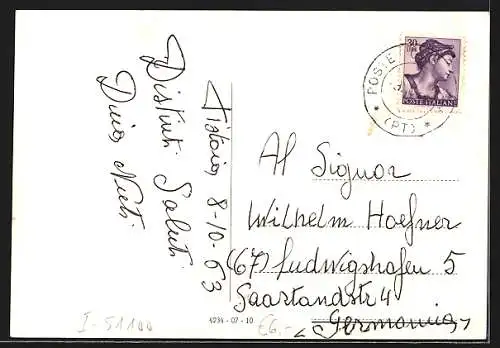 Pistoia, 8-10-63
Distinti Saluti
Dino Nuti
POSTE
(PT)
30
LIRE
POSTE ITALIANE
Al Signor
Wilhelm Hoefner
(67) Ludwigshafen 5
Saarlandstr 4
Germania
4234 - 07 - 10
I-51100
€6,-